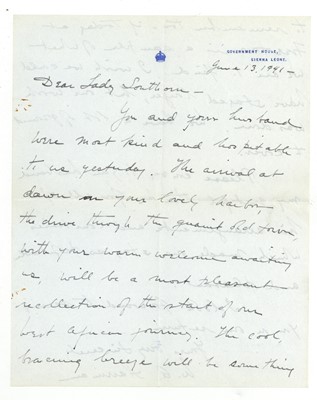 GOVERNMENT HOUSE,
SIERRA LEONE.
June 13, 1941 -
Dear Lady Southorn -
You and your husband
were most kind and hospitable
to us yesterday. The arrival at
dawn on your lovely harbor,
the drive through the quaint old town,
with your warm welcome awaiting
us, will be a most pleasant
recollection of the start of our
West African journey. The cool,
bracing breeze will be something